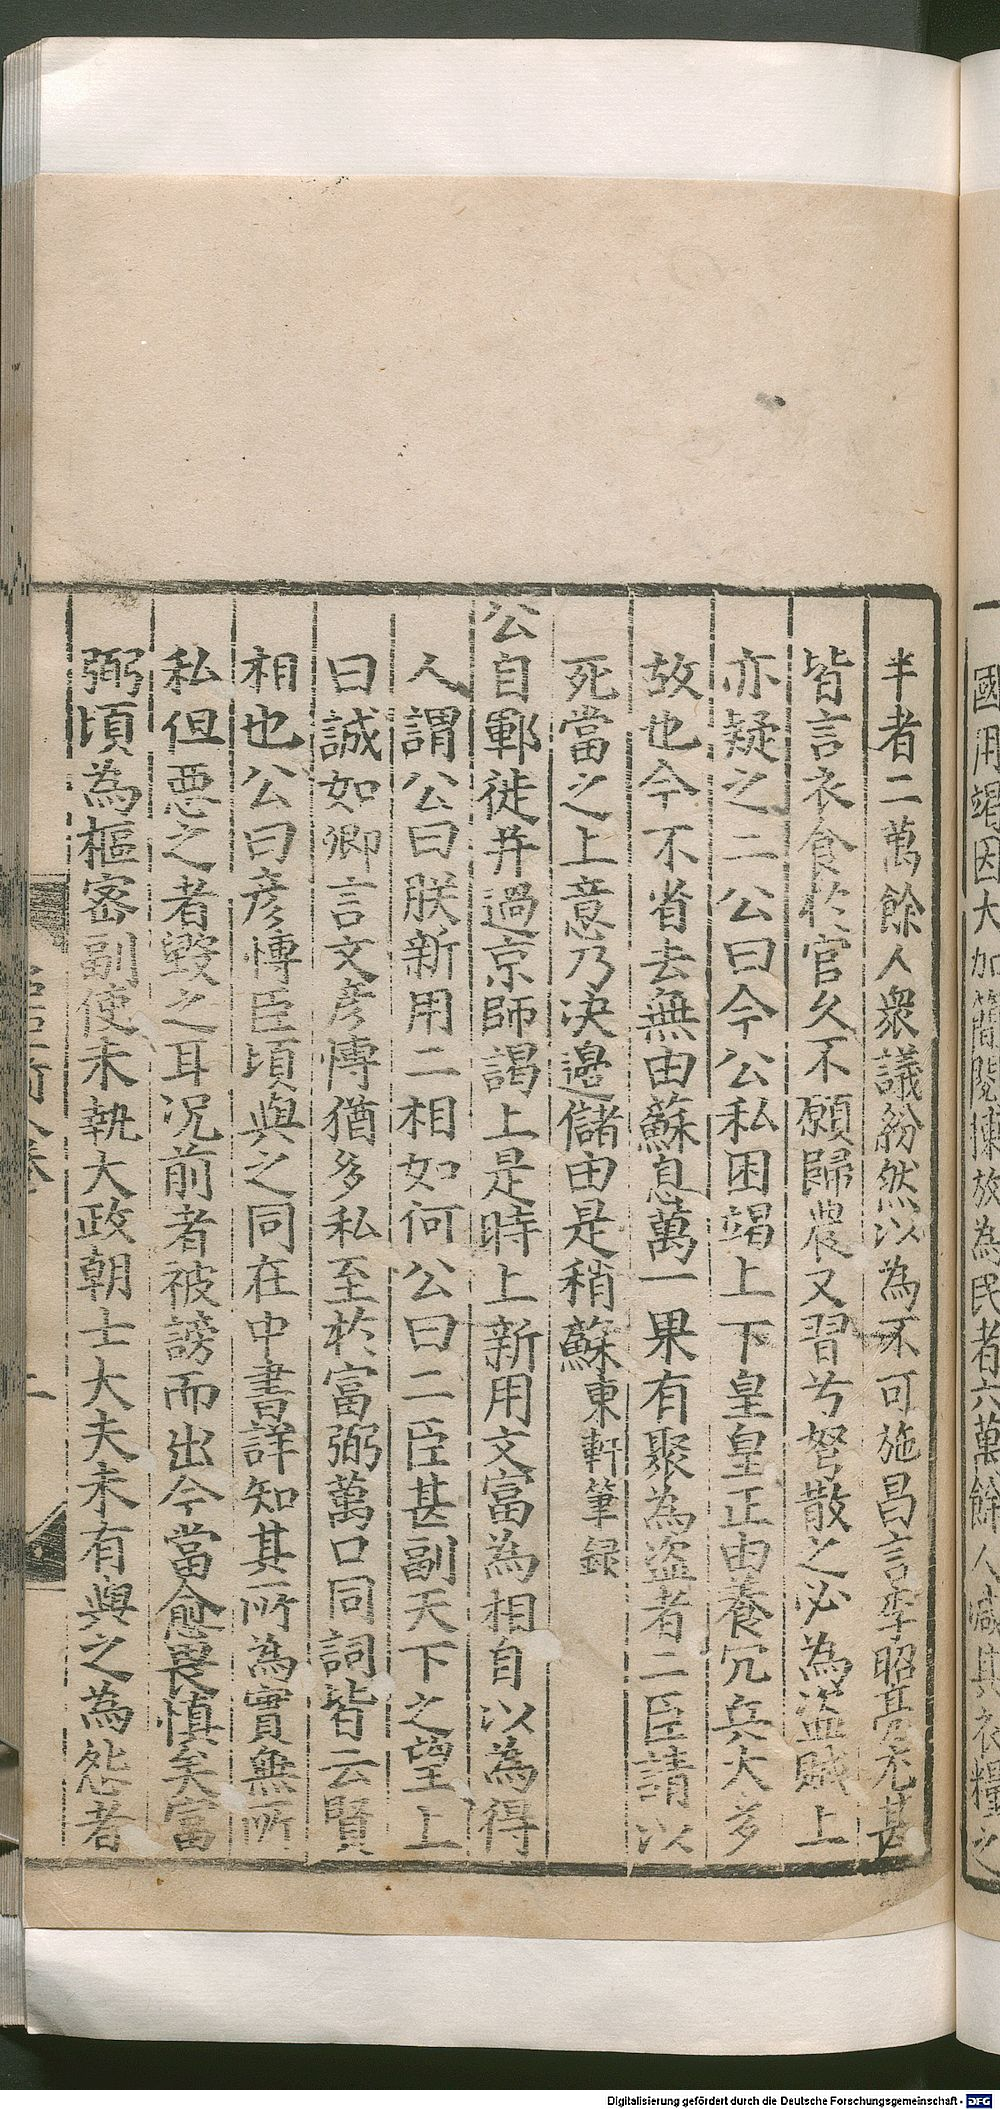 國用竭因大加簡閱揀放為民者六萬餘人減其衣糧之
半者二萬餘人衆議紛然以為不可施昌言李昭亮尤甚
皆言衣食於官久不願歸農又習兮弩散之必為盗賊上
亦疑之二公曰今公私困竭上下皇皇正由養冗兵大多
故也今不省去無由蘇息萬一果有聚為盗者二臣請以
死當之上意乃决邊儲由是稍蘇東軒筆録
公自鄆徙并過京師謁上是時上新用文富為相自以為得
人謂公曰朕新用二相如何公曰二臣甚副天下之望上
曰誠如卿言文彦慱猶多私至於富弼萬口同詞皆云賢
相也公曰彦慱臣頃與之同在中書詳知其所為實無所
私但惡之者毀之耳况前者被謗而出今當愈畏慎矣富
弼頃為樞密副使未執大政朝士大夫未有與之為怨者
Digitalisierung gefördert durch die Deutsche Forschungsgemeinschaft - DFG